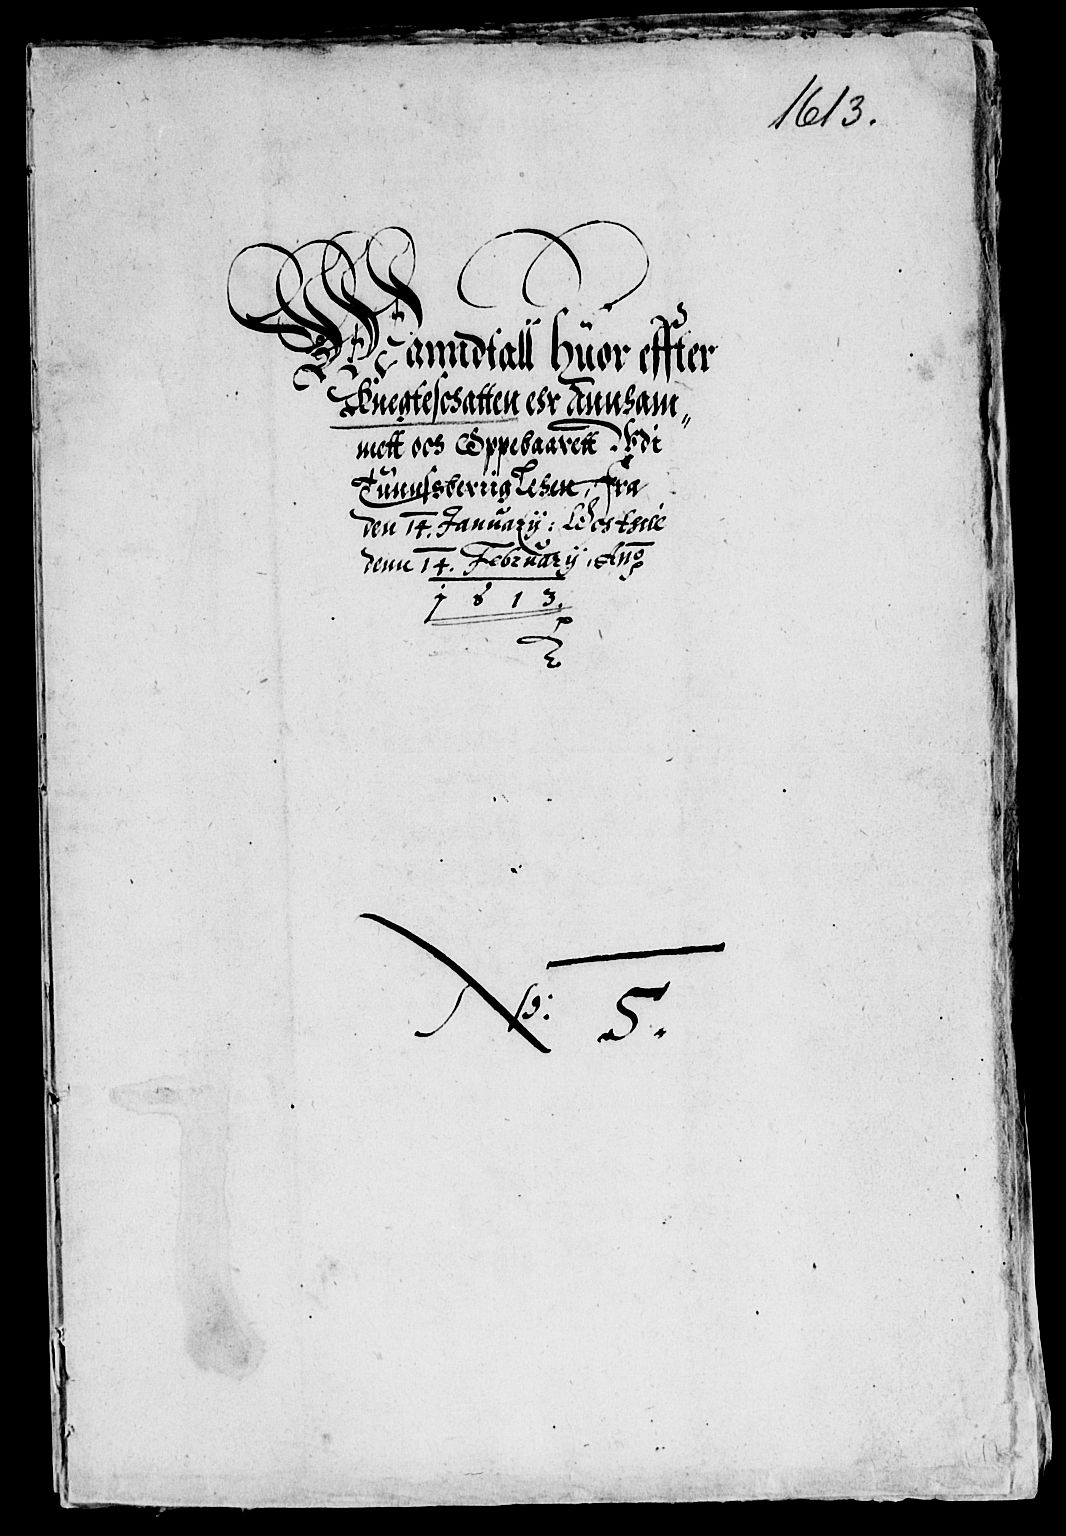 1613.
Manndtall huor effter
Knegteschatten ehr Annham„
mett och Oppebaarett Udi
Tünnsberrig Lehen, Fra
den 14. January: Och till
denn 14. February, Año
1613.
No: 5.